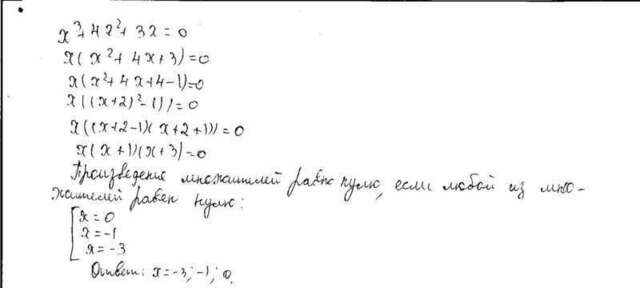 x³+4x²+3x=0
x(x²+4x+3)=0
x(x²+4x+4-1)=0
x((x+2)²-1))=0
x((x+2-1)(x+2+1))=0
x(x+1)(x+3)=0
Произведение множителей равно нулю, если любой из мно-
жителей равен нулю:
[x=0
x=-1
x=-3
Ответ: x=-3;-1;0.